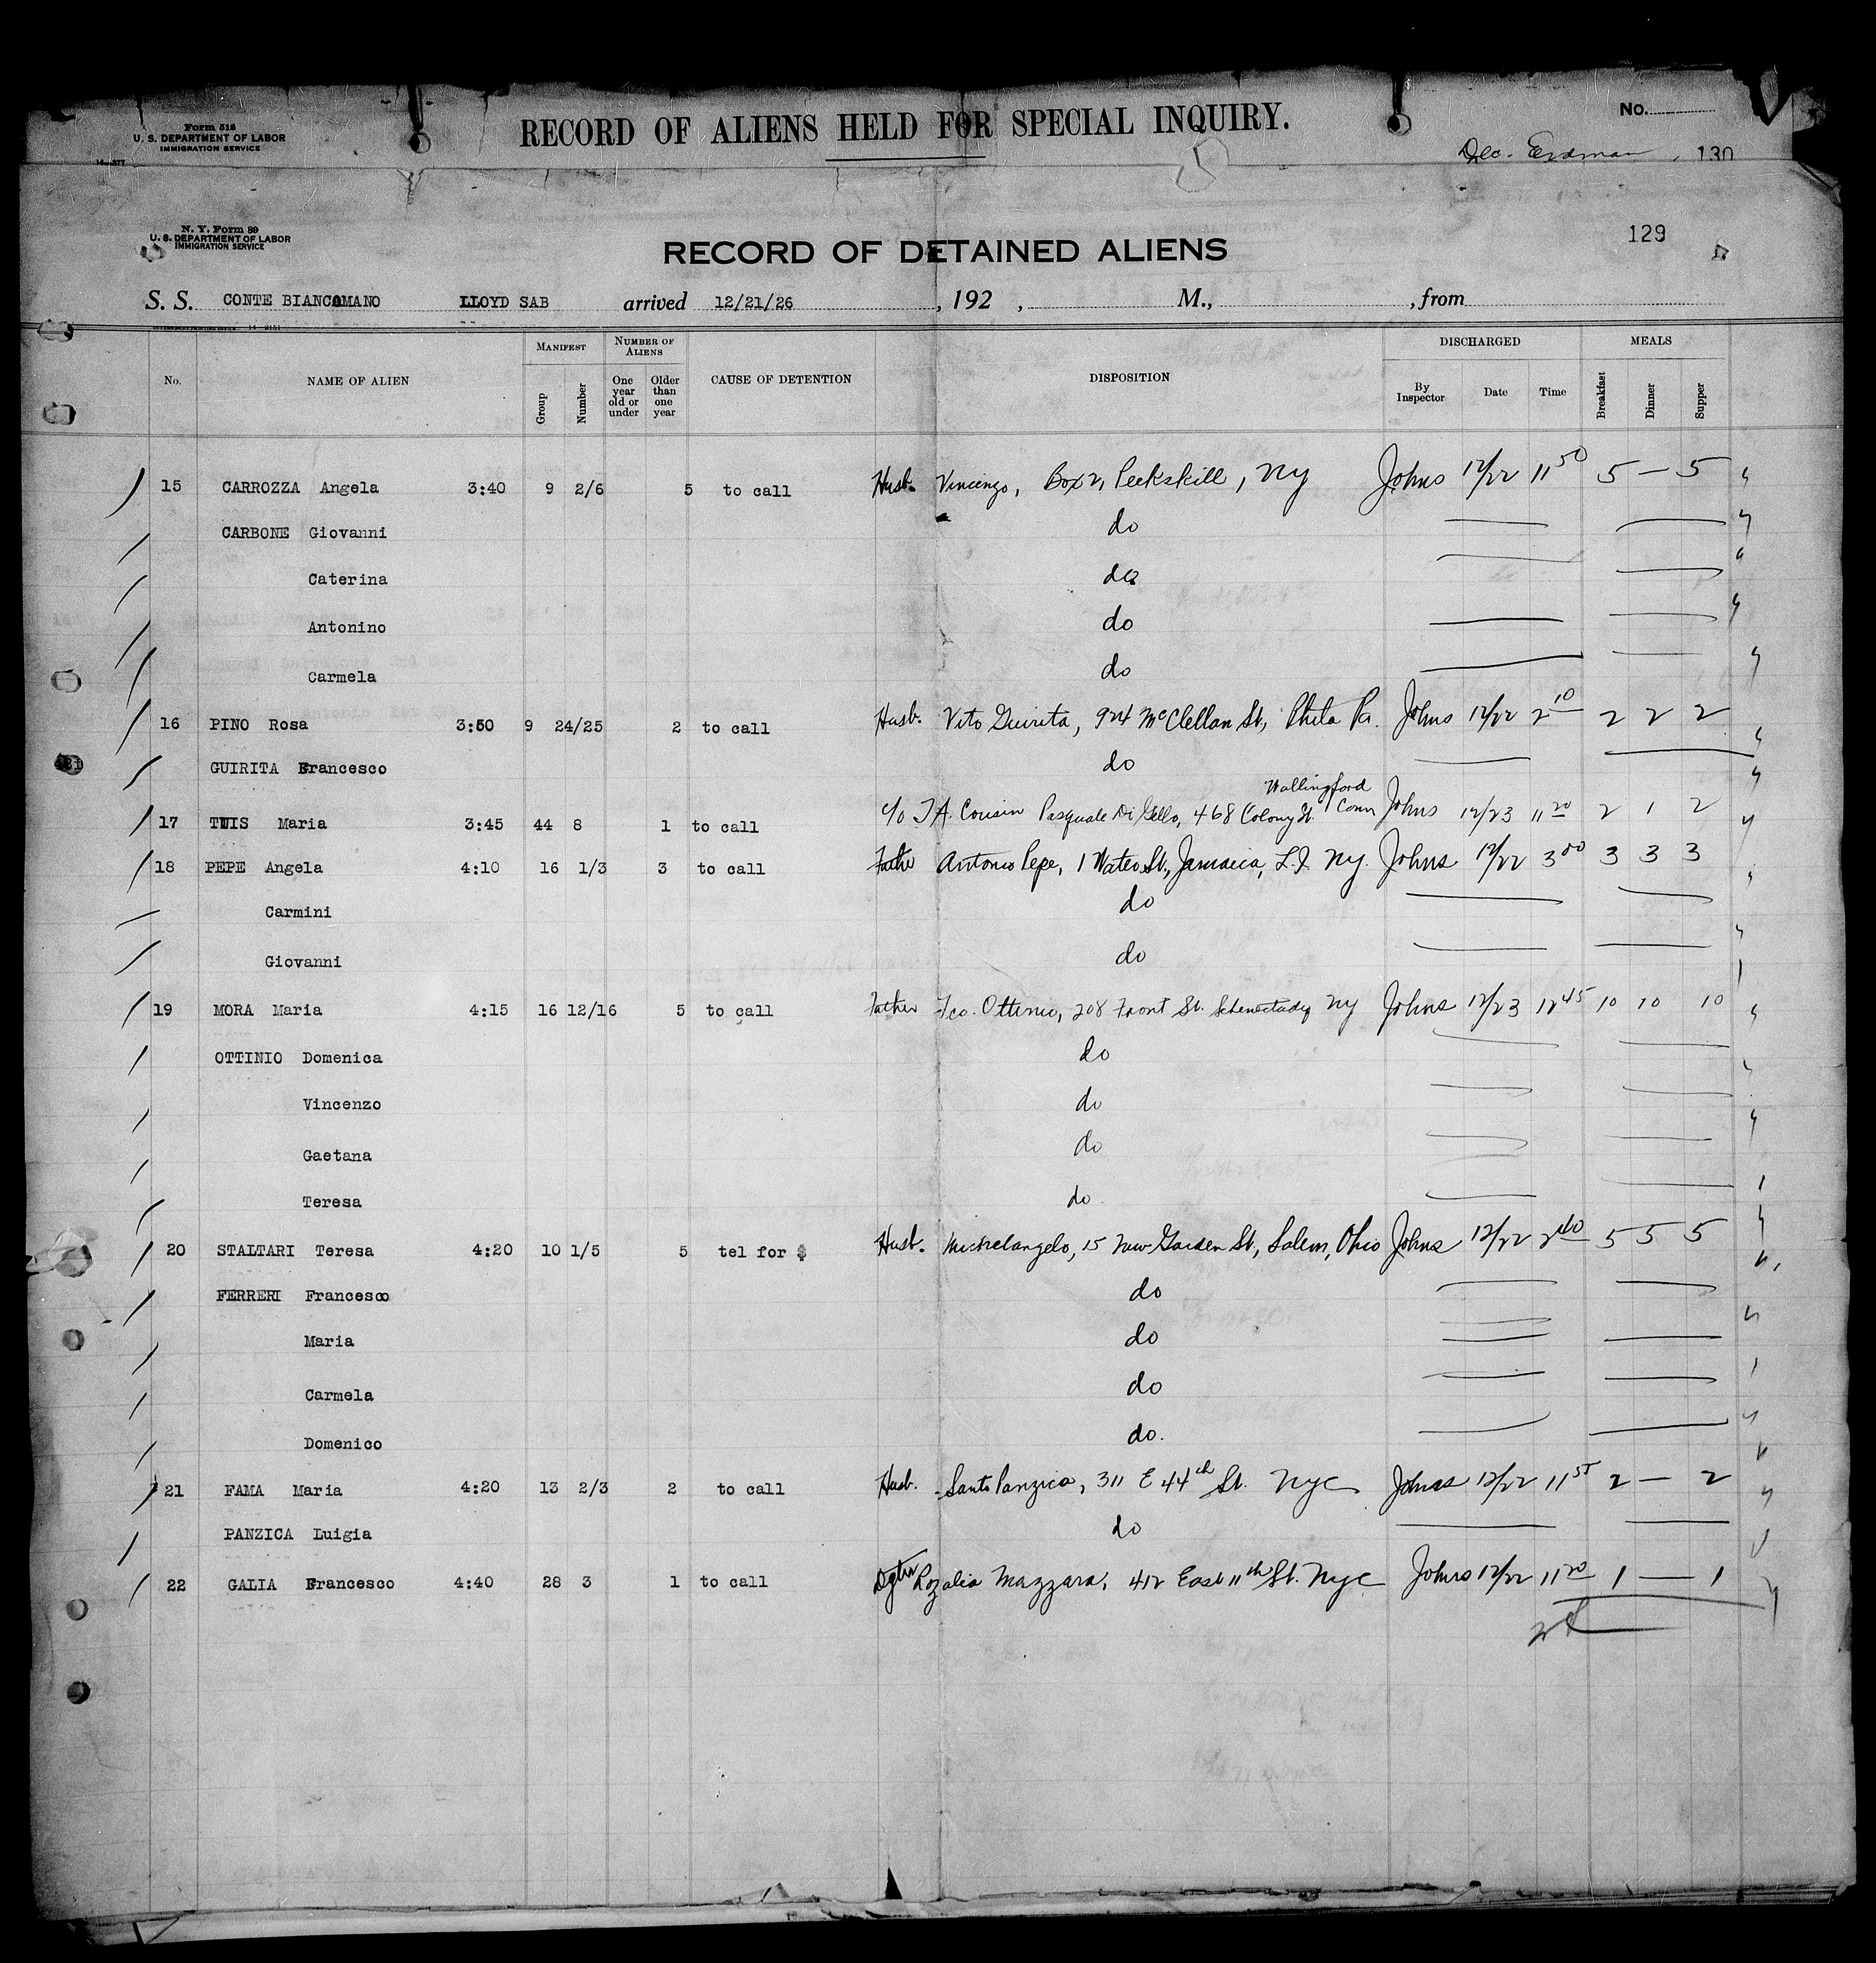 Form 518
U. S. DEPARTMENT OF LABOR
IMMIGRATION SERVICE
RECORD OF ALIENS HELD FOR SPECIAL INQUIRY.
No.
Dec. Erdman, 130
N. Y. Form 89
U. S. DEPARTMENT OF LABOR
IMMIGRATION SERVICE
RECORD OF DETAINED ALIENS
129
S. S. CONTE BIANCAMANO LLOYD SAB arrived 12/21/26, 192 , M., , from
No. NAME OF ALIEN MANIFEST Group Number NUMBER OF ALIENS One year old or under Older than one year CAUSE OF DETENTION DISPOSITION DISCHARGED By Inspector Date Time MEALS Breakfast Dinner Supper
15 CARROZZA Angela 3:40 9 2/6 5 to call Husb. Vincenzo, Box 2, Peekskill, NY Johns 12/22 11 50 5 — 5
CARBONE Giovanni do
Caterina do
Antonino do
Carmela do
16 PINO Rosa 3:50 9 24/25 2 to call Husb. Vito Guirita, 924 McClellan St, Phila Pa. Johns 12/22 2 10 2 2 2
GUIRITA Francesco do
17 Maria 3:45 44 8 1 to call c/o T.A. Cousin Pasquale Di Gello, 468 Colony St. Wallingford Conn Johns 12/23 11 20 2 1 2
18 PEPE Angela 4:10 16 1/3 3 to call Father Antonio Pepe, 1 Water St., Jamaica, L.I. NY. Johns 12/22 3 00 3 3 3
Carmini do
Giovanni do
19 MORA Maria 4:15 16 12/16 5 to call Father Fco. Ottinio, 208 Front St. Schenectady NY Johns 12/23 12 45 10 10 10
OTTINIO Domenica do
Vincenzo do
Gaetana do
Teresa do
20 STALTARI Teresa 4:20 10 1/5 5 tel for $ Husb. Michelangelo, 15 New Garden St, Salem, Ohio Johns 12/22 2 40 5 5 5
FERRERI Francesco do
Maria do
Carmela do
Domenico do.
21 FAMA Maria 4:20 13 2/3 2 to call Husb. Santo Panzica, 311 E 44th St. NYC Johns 12/22 11 55 2 — 2
PANZICA Luigia do
22 GALIA Francesco 4:40 28 3 1 to call Dgtr Rozalia Mazzara, 412 East 11th St. NYC Johns 12/22 11 20 1 — 1